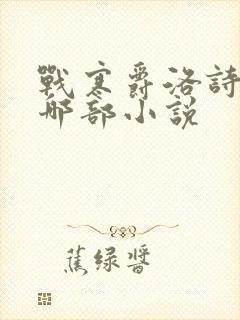 戰寒爵洛詩
哪部小說
蕉绿醬